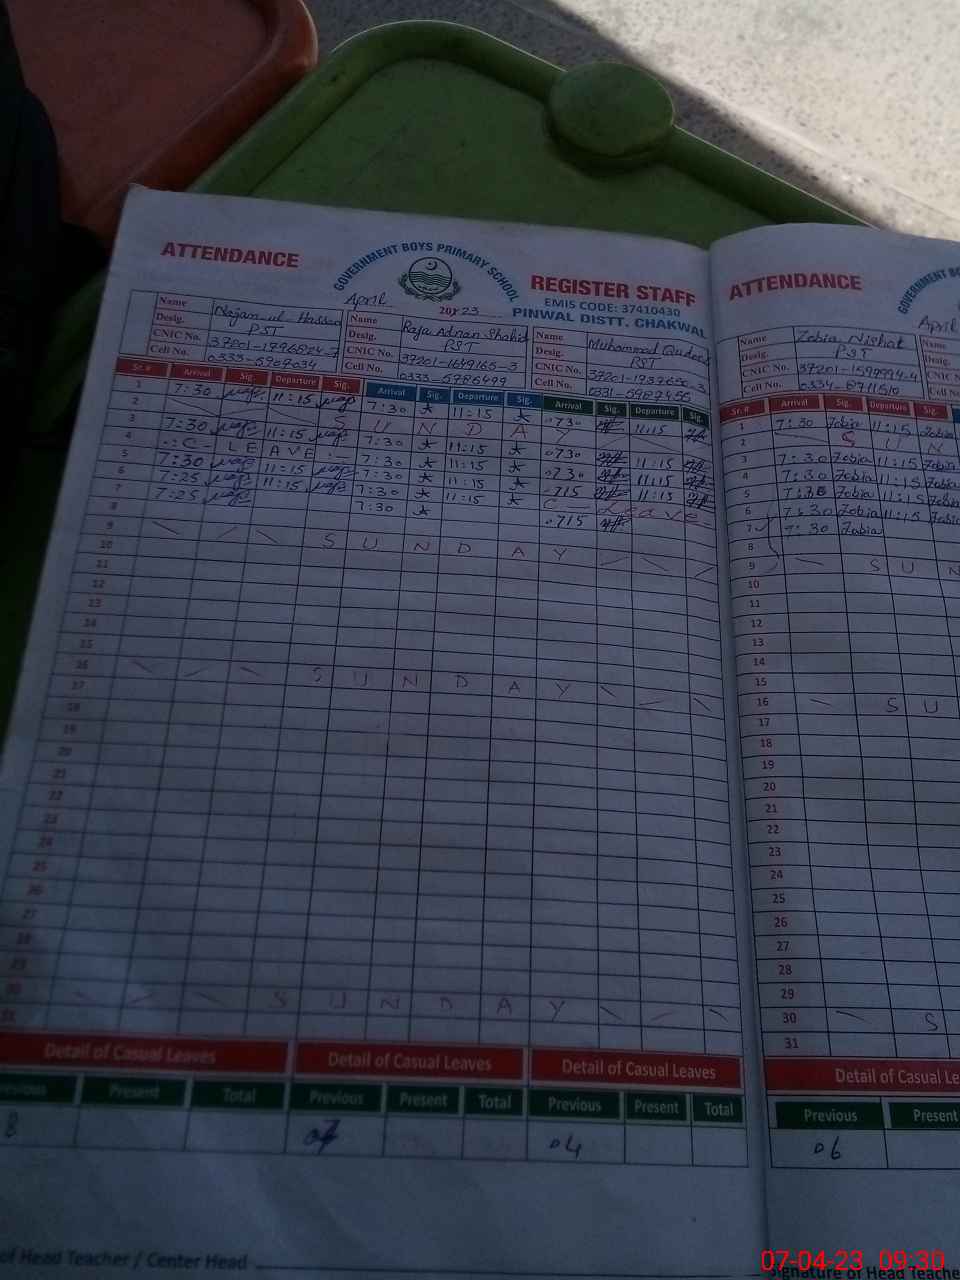 ATTENDANCE
GOVERNMENT BOYS PRIMARY SCHOOL
April 2023
REGISTER STAFF
EMIS CODE: 37410430
PINWAL DISTT. CHAKWAL
Name Najam ul Hassan
Desig. PST
CNIC No.
Cell No.
Name Raja Adnan Shahid
Desig. PST
CNIC No. 37201-1649165-3
Cell No. 0333-5786499
Name Muhammad
Desig. PST
CNIC No.
Cell No.
Sr. # Arrival Sig. Departure Sig. Arrival Sig. Departure Sig. Arrival Sig. Departure Sig.
1 7:30 11:15 7:30 11:15 0730 11:15
2 S U N D A Y
3 7:30 11:15 7:30 11:15 0730 11:15
4 C - LEAVE 7:30 11:15 0730 11:15
5 7:30 11:15 7:30 11:15 0715 11:15
6 7:25 11:15 7:30 11:15 C - Leave
7 7:25 7:30 0715
8
9 S U N D A Y
10
11
12
13
14
15
16 S U N D A Y
17
18
19
20
21
22
23
24
25
26
27
28
29
30 S U N D A Y
31
Detail of Casual Leaves Detail of Casual Leaves Detail of Casual Leaves
Previous Present Total Previous Present Total Previous Present Total
8 04
of Head Teacher / Center Head
ATTENDANCE
GOVERNMENT
April
Name Zobia Nishat
Desig. PST
CNIC No.
Cell No. 0334-8711510
Name
Desig.
CNIC No.
Cell No.
Sr. # Arrival Sig. Departure Sig.
1 7:30 Zobia 11:15 Zobia
2 S U N
3 7:30 Zobia 11:15 Zobia
4 7:30 Zobia 11:15 Zobia
5 7:30 Zobia 11:15 Zobia
6 7:30 Zobia 11:15 Zobia
7 7:30 Zobia
8
9 S U N
10
11
12
13
14
15
16 S U
17
18
19
20
21
22
23
24
25
26
27
28
29
30 S
31
Detail of Casual
Previous Present
06
Signature of Head
07-04-23 09:30